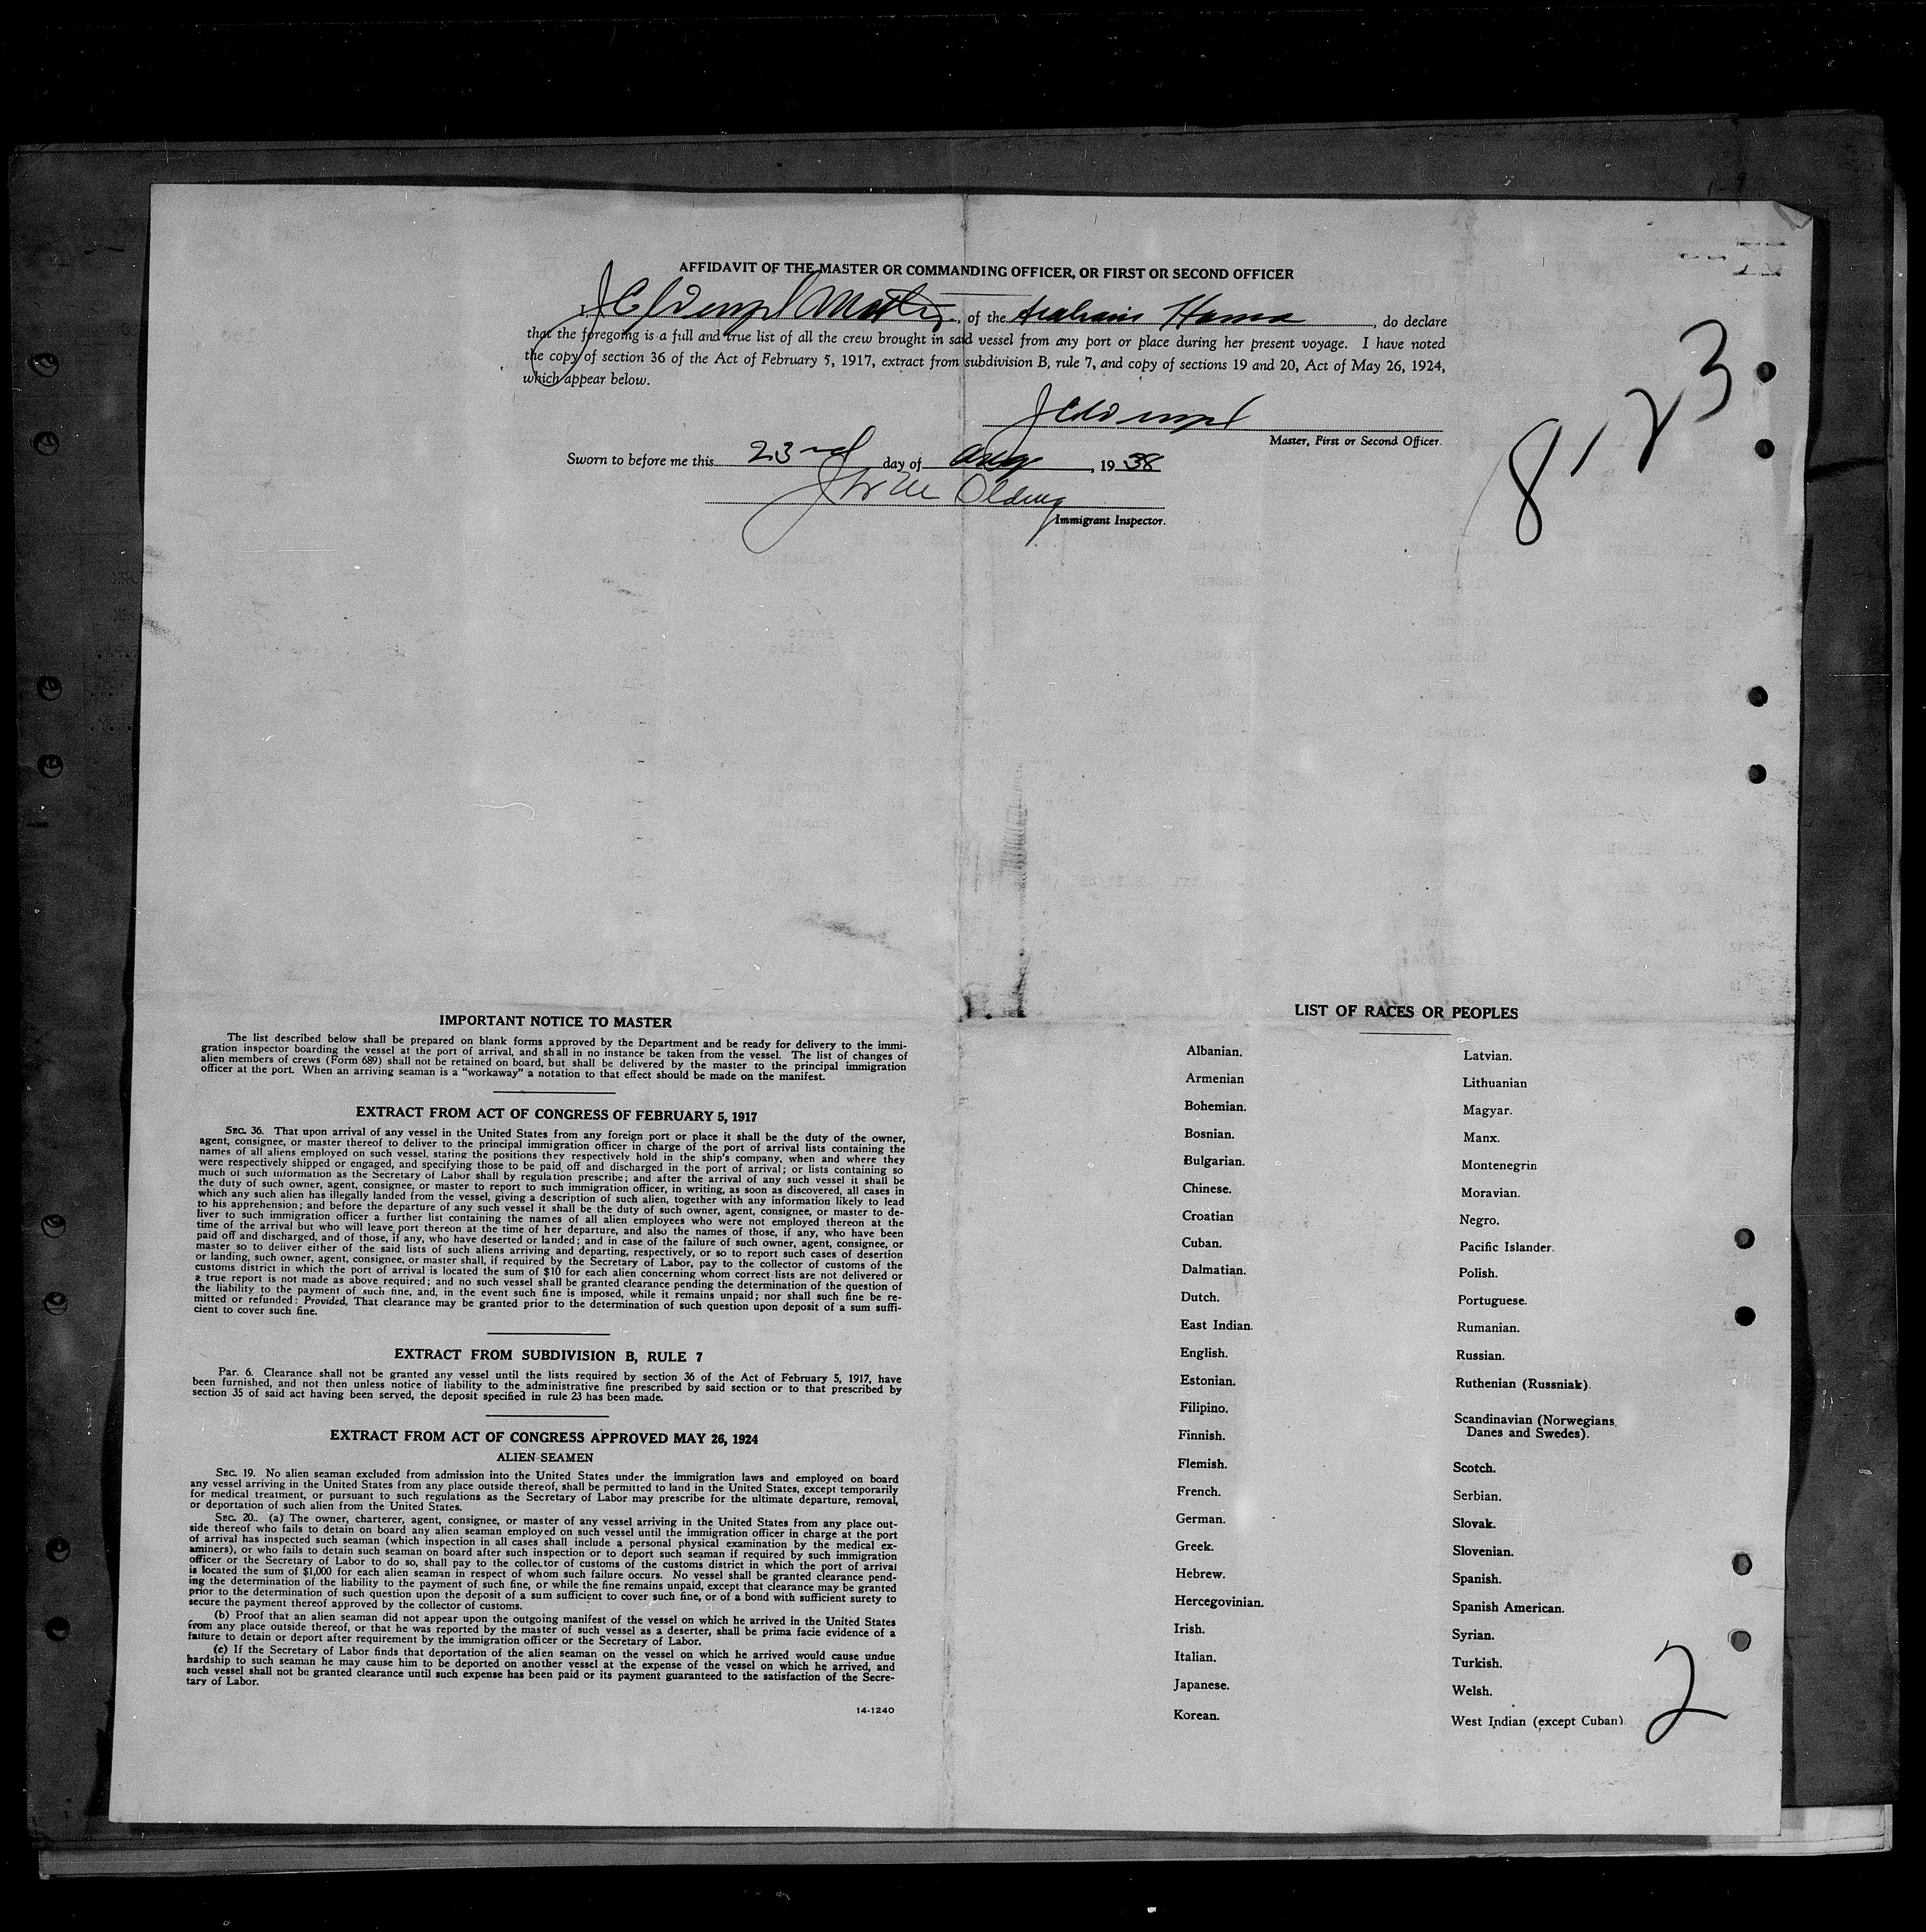 AFFIDAVIT OF THE MASTER OR COMMANDING OFFICER, OR FIRST OR SECOND OFFICER
I, of the, do declare
that the foregoing is a full and true list of all the crew brought in said vessel from any port or place during her present voyage. I have noted
the copy of section 36 of the Act of February 5, 1917, extract from subdivision B, rule 7, and copy of sections 19 and 20, Act of May 26, 1924,
which appear below.
8/23
Master, First or Second Officer.
Sworn to before me this 23rd day of Aug, 1938
Immigrant Inspector.
IMPORTANT NOTICE TO MASTER
The list described below shall be prepared on blank forms approved by the Department and be ready for delivery to the immi-
gration inspector boarding the vessel at the port of arrival, and shall in no instance be taken from the vessel. The list of changes of
alien members of crews (Form 689) shall not be retained on board, but shall be delivered by the master to the principal immigration
officer at the port. When an arriving seaman is a "workaway" a notation to that effect should be made on the manifest.
EXTRACT FROM ACT OF CONGRESS OF FEBRUARY 5, 1917
SEC. 36. That upon arrival of any vessel in the United States from any foreign port or place it shall be the duty of the owner,
agent, consignee, or master thereof to deliver to the principal immigration officer in charge of the port of arrival lists containing the
names of all aliens employed on such vessel, stating the positions they respectively hold in the ship's company, when and where they
were respectively shipped or engaged, and specifying those to be paid off and discharged in the port of arrival; or lists containing so
much of such information as the Secretary of Labor shall by regulation prescribe; and after the arrival of any such vessel it shall be
the duty of such owner, agent, consignee, or master to report to such immigration officer, in writing, as soon as discovered, all cases in
which any such alien has illegally landed from the vessel, giving a description of such alien, together with any information likely to lead
to his apprehension; and before the departure of any such vessel it shall be the duty of such owner, agent, consignee, or master to de-
liver to such immigration officer a further list containing the names of all alien employees who were not employed thereon at the
time of the arrival but who will leave port thereon at the time of her departure, and also the names of those, if any, who have been
paid off and discharged, and of those, if any, who have deserted or landed; and in case of the failure of such owner, agent, consignee, or
master so to deliver either of the said lists of such aliens arriving and departing, respectively, or so to report such cases of desertion
or landing, such owner, agent, consignee, or master shall, if required by the Secretary of Labor, pay to the collector of customs of the
customs district in which the port of arrival is located the sum of $10 for each alien concerning whom correct lists are not delivered or
a true report is not made as above required; and no such vessel shall be granted clearance pending the determination of the question of
the liability to the payment of such fine, and, in the event such fine is imposed, while it remains unpaid; nor shall such fine be re-
mitted or refunded: Provided, That clearance may be granted prior to the determination of such question upon deposit of a sum suffi-
cient to cover such fine.
EXTRACT FROM SUBDIVISION B, RULE 7
Par. 6. Clearance shall not be granted any vessel until the lists required by section 36 of the Act of February 5, 1917, have
been furnished, and not then unless notice of liability to the administrative fine prescribed by said section or to that prescribed by
section 35 of said act having been served, the deposit specified in rule 23 has been made.
EXTRACT FROM ACT OF CONGRESS APPROVED MAY 26, 1924
ALIEN SEAMEN
SEC. 19. No alien seaman excluded from admission into the United States under the immigration laws and employed on board
any vessel arriving in the United States from any place outside thereof, shall be permitted to land in the United States, except temporarily
for medical treatment, or pursuant to such regulations as the Secretary of Labor may prescribe for the ultimate departure, removal,
or deportation of such alien from the United States.
SEC. 20.. (a) The owner, charterer, agent, consignee, or master of any vessel arriving in the United States from any place out-
side thereof who fails to detain on board any alien seaman employed on such vessel until the immigration officer in charge at the port
of arrival has inspected such seaman (which inspection in all cases shall include a personal physical examination by the medical ex-
aminers), or who fails to detain such seaman on board after such inspection or to deport such seaman if required by such immigration
officer or the Secretary of Labor to do so, shall pay to the collector of customs of the customs district in which the port of arrival
is located the sum of $1,000 for each alien seaman in respect of whom such failure occurs. No vessel shall be granted clearance pend-
ing the determination of the liability to the payment of such fine, or while the fine remains unpaid, except that clearance may be granted
prior to the determination of such question upon the deposit of a sum sufficient to cover such fine, or of a bond with sufficient surety to
secure the payment thereof approved by the collector of customs.
(b) Proof that an alien seaman did not appear upon the outgoing manifest of the vessel on which he arrived in the United States
from any place outside thereof, or that he was reported by the master of such vessel as a deserter, shall be prima facie evidence of a
failure to detain or deport after requirement by the immigration officer or the Secretary of Labor.
(c) If the Secretary of Labor finds that deportation of the alien seaman on the vessel on which he arrived would cause undue
hardship to such seaman he may cause him to be deported on another vessel at the expense of the vessel on which he arrived, and
such vessel shall not be granted clearance until such expense has been paid or its payment guaranteed to the satisfaction of the Secre-
tary of Labor.
14-1240
LIST OF RACES OR PEOPLES
Albanian.
Armenian
Bohemian.
Bosnian.
Bulgarian.
Chinese.
Croatian
Cuban.
Dalmatian.
Dutch.
East Indian.
English.
Estonian.
Filipino.
Finnish.
Flemish.
French.
German.
Greek.
Hebrew.
Hercegovinian.
Irish.
Italian.
Japanese.
Korean.
Latvian.
Lithuanian
Magyar.
Manx.
Montenegrin
Moravian.
Negro.
Pacific Islander.
Polish.
Portuguese.
Rumanian.
Russian.
Ruthenian (Russniak).
Scandinavian (Norwegians,
Danes and Swedes).
Scotch.
Serbian.
Slovak.
Slovenian.
Spanish.
Spanish American.
Syrian.
Turkish.
Welsh.
West Indian (except Cuban).
2